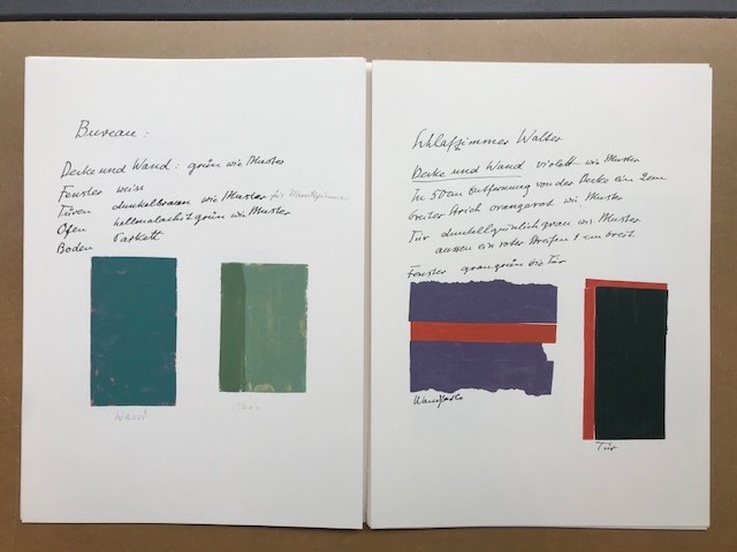 Bureau:
Decke und Wand: grün wie Muster
Fenster weiss
Türen dunkelbraun wie Muster
Ofen hellmalachitgrün wie Muster
Boden Parkett
Wand
Schlafzimmer Walter
Decke und Wand violett wie Muster
In 50 cm Entfernung von der Decke ein 2 cm
breiter Strich orangerot wie Muster
Tür dunkelgrünlich grau wie Muster
aussen ein roter Streifen 1 cm breit
Fenster graugrün wie Tür
Wandfarbe
Tür